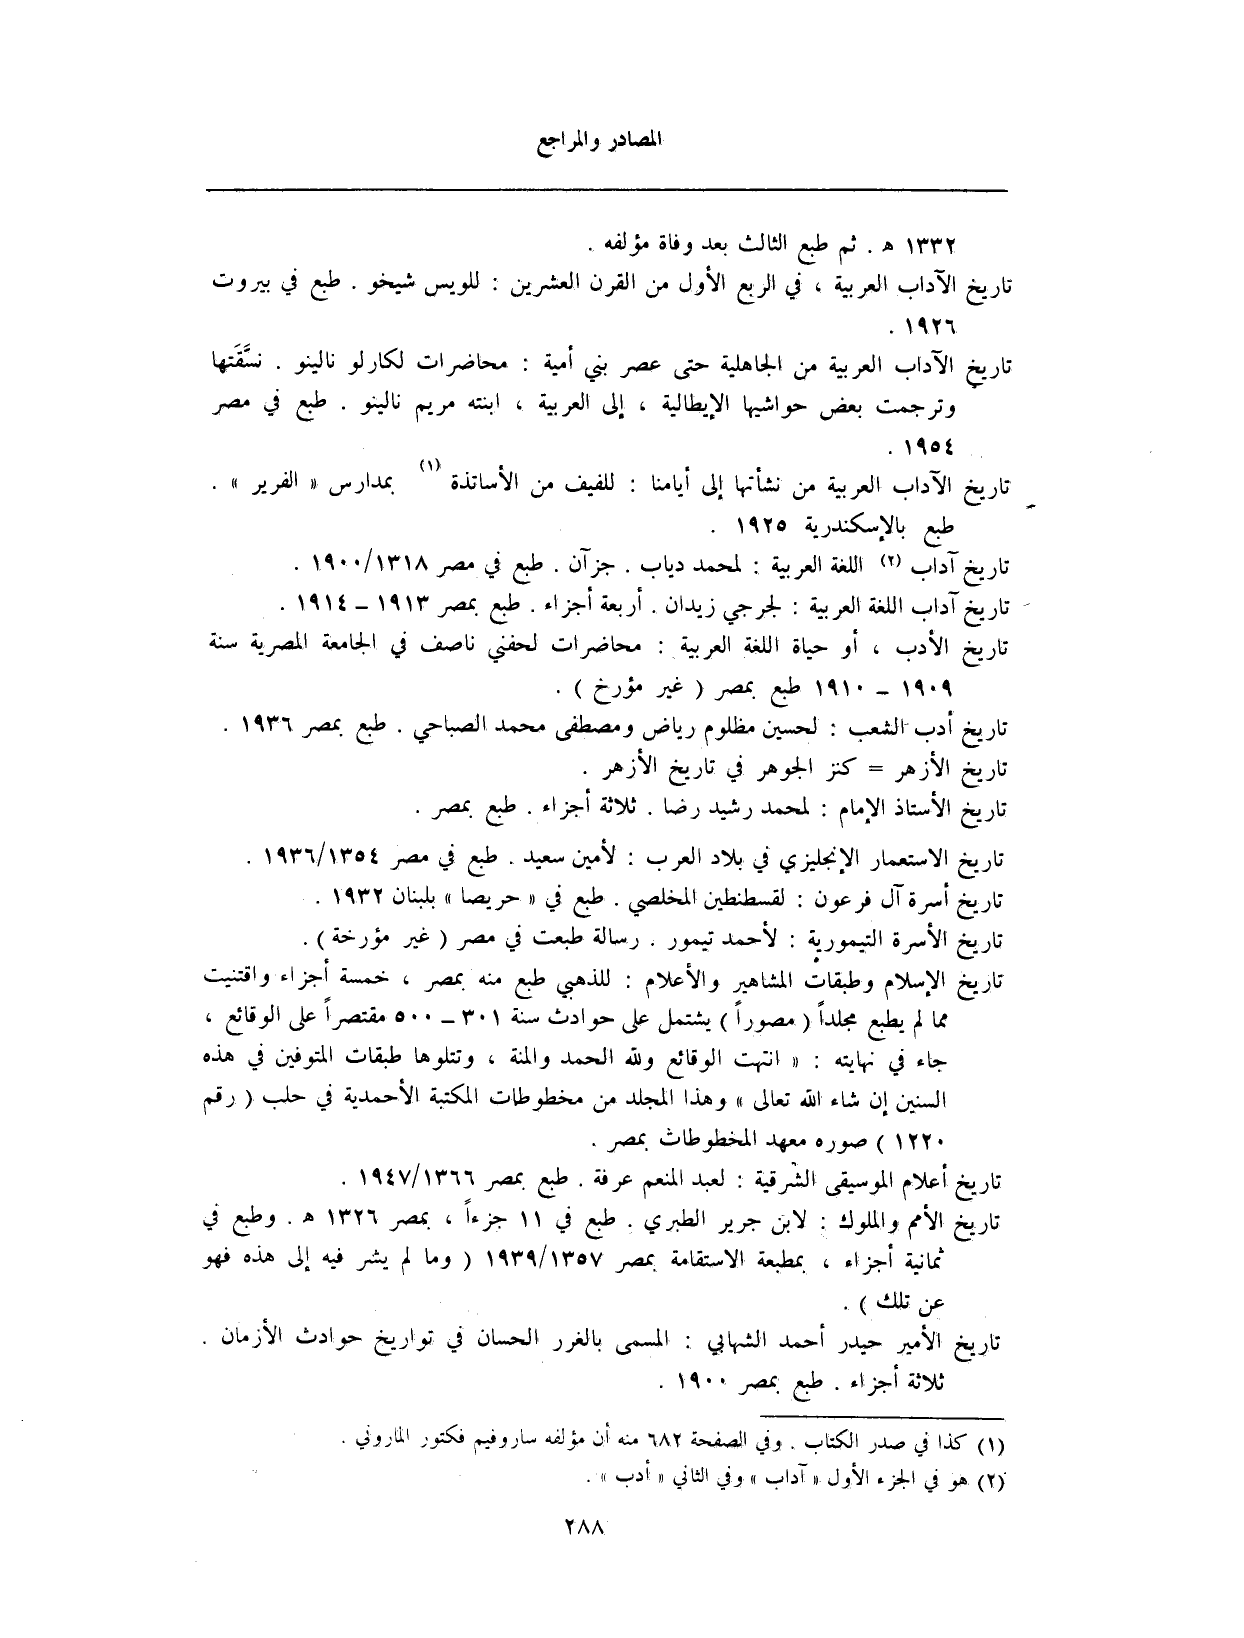 المصادر والمراجع
١٣٣٢ هـ . ثم طبع الثالث بعد وفاة مؤلفه .
تاريخ الآداب العربية ، في الربع الأول من القرن العشرين : للويس شيخو . طبع في بيروت
١٩٢٦ .
تاريخ الآداب العربية من الجاهلية حتى عصر بني أمية : محاضرات لكارلو نالينو . نسَّقَتها
وترجمت بعض حواشيها الإيطالية ، إلى العربية ، ابنته مريم نالينو . طبع في مصر
١٩٥٤ .
تاريخ الآداب العربية من نشأتها إلى أيامنا : للفيف من الأساتذة (١) بمدارس « الفرير » .
طبع بالإسكندرية ١٩٢٥ .
تاريخ آداب (٢) اللغة العربية : لمحمد دياب . جزآن . طبع في مصر ١٩٠٠/١٣١٨ .
تاريخ آداب اللغة العربية : لجرجي زيدان . أربعة أجزاء . طبع بمصر ١٩١٣ – ١٩١٤ .
تاريخ الأدب ، أو حياة اللغة العربية : محاضرات لحفني ناصف في الجامعة المصرية سنة
١٩٠٩ – ١٩١٠ طبع بمصر ( غير مؤرخ ) .
تاريخ أدب الشعب : لحسين مظلوم رياض ومصطفى محمد الصباحي . طبع بمصر ١٩٣٦ .
تاريخ الأزهر = كنز الجوهر في تاريخ الأزهر .
تاريخ الأستاذ الإمام : لمحمد رشيد رضا . ثلاثة أجزاء . طبع بمصر .
تاريخ الاستعمار الإنجليزي في بلاد العرب : لأمين سعيد . طبع في مصر ١٩٣٦/١٣٥٤ .
تاريخ أسرة آل فرعون : لقسطنطين المخلصي . طبع في « حريصا » بلبنان ١٩٣٢ .
تاريخ الأسرة التيمورية : لأحمد تيمور . رسالة طبعت في مصر ( غير مؤرخة ) .
تاريخ الإسلام وطبقات المشاهير والأعلام : للذهبي طبع منه بمصر ، خمسة أجزاء واقتنيت
مما لم يطبع مجلداً ( مصوراً ) يشتمل على حوادث سنة ٣٠١ – ٥٠٠ مقتصراً على الوقائع ،
جاء في نهايته : « انتهت الوقائع ولله الحمد والمنة ، وتتلوها طبقات المتوفين في هذه
السنين إن شاء الله تعالى » وهذا المجلد من مخطوطات المكتبة الأحمدية في حلب ( رقم
١٢٢٠ ) صوره معهد المخطوطات بمصر .
تاريخ أعلام الموسيقى الشرقية : لعبد المنعم عرفة . طبع بمصر ١٩٤٧/١٣٦٦ .
تاريخ الأمم والملوك : لابن جرير الطبري . طبع في ١١ جزءاً ، بمصر ١٣٢٦ هـ . وطبع في
ثمانية أجزاء ، بمطبعة الاستقامة بمصر ١٩٣٩/١٣٥٧ ( وما لم يشر فيه إلى هذه فهو
عن تلك ) .
تاريخ الأمير حيدر أحمد الشهابي : المسمى بالغرر الحسان في تواريخ حوادث الأزمان .
ثلاثة أجزاء . طبع بمصر ١٩٠٠ .
(١) كذا في صدر الكتاب . وفي الصفحة ٦٨٢ منه أن مؤلفه ساروفيم فكتور الماروني .
(٢) هو في الجزء الأول « آداب » وفي الثاني « أدب » .
٢٨٨